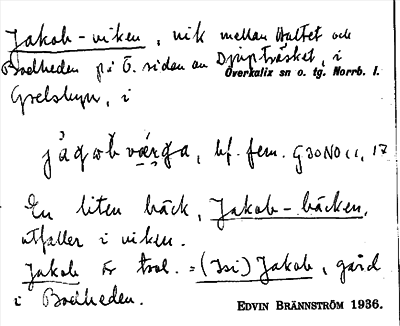 Jakob-viken, vik mellan Hultet och
Bodheden på Ö. sidan av Djupträsket, i
Överkalix sn o. tg. Norrb. l.
Grelsbyn, i
bf. fem. G30NO11, 17
En liten bäck, Jakob-bäcken,
utfaller i viken.
Jakob är trol. = (Isi) Jakob, gård
i Bodheden.
EDVIN BRÄNNSTRÖM 1936.